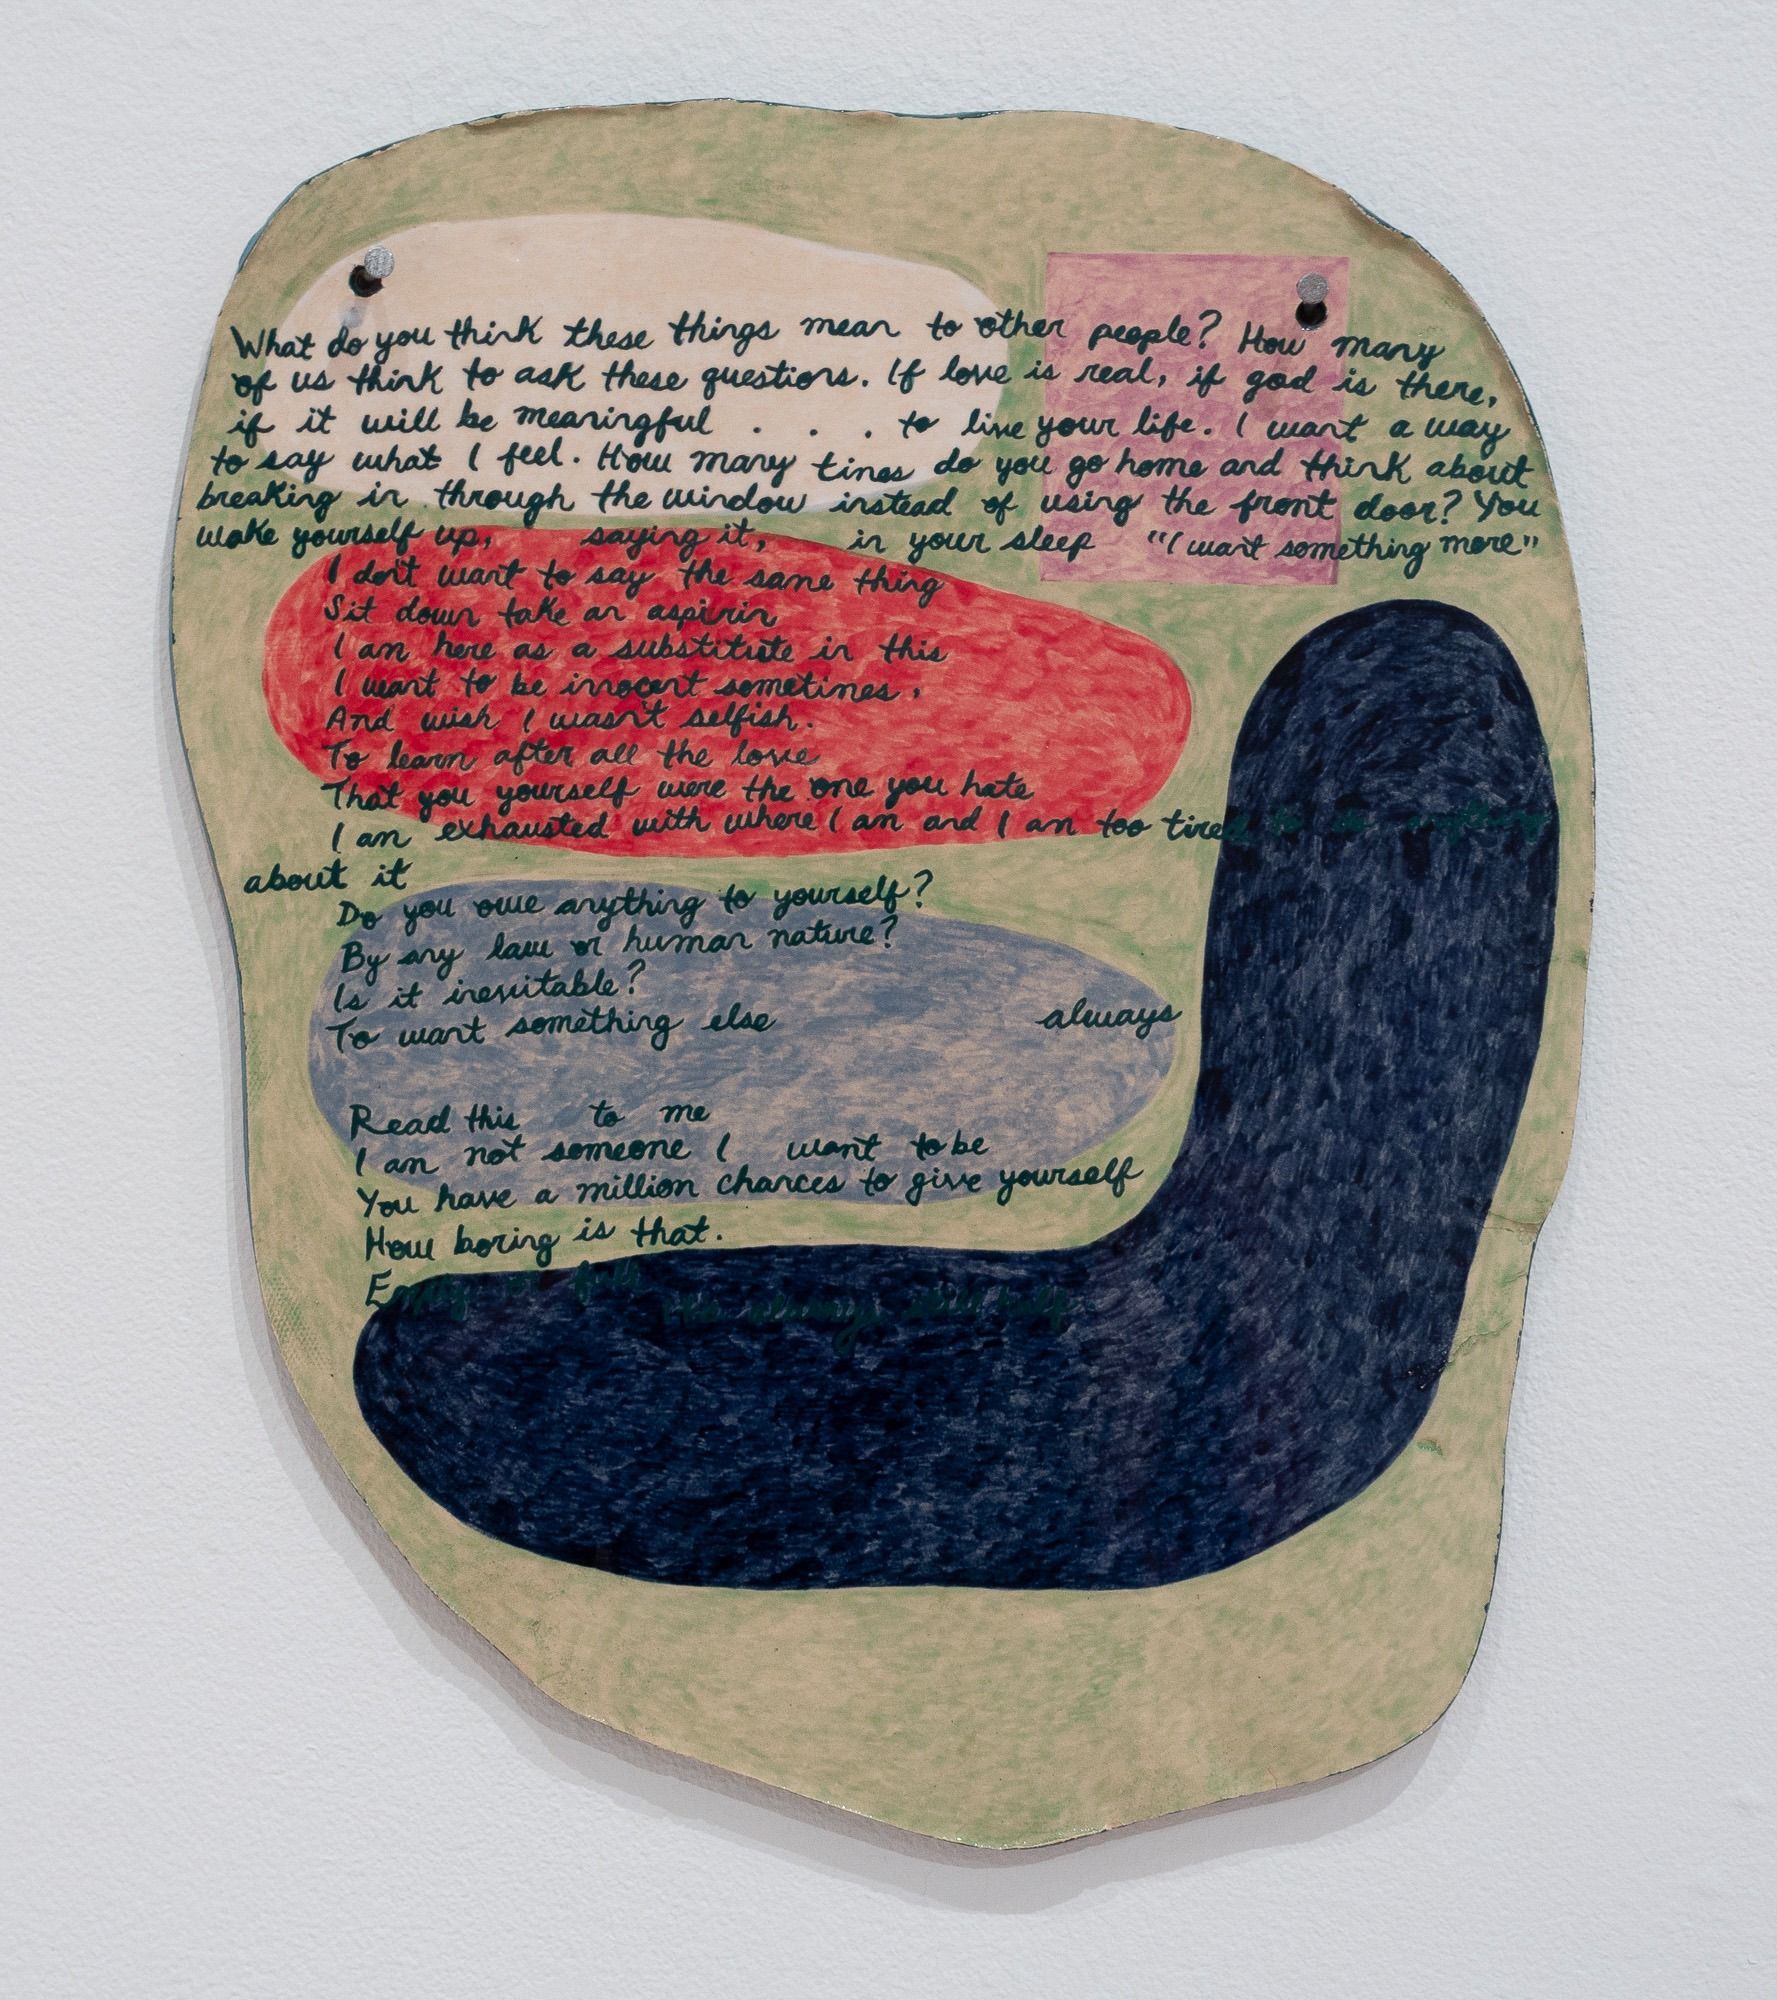 What do you think these things mean to other people? How many
of us think to ask these questions. If love is real, if god is there,
if it will be meaningful . . . to live your life. I want a way
to say what I feel. How many times do you go home and think about
breaking in through the window instead of using the front door? You
wake yourself up, saying it, in your sleep "I want something more"
I don't want to say the same thing
Sit down take an aspirin
I am here as a substitute in this
I want to be innocent sometimes,
And wish I wasn't selfish.
To learn after all the love
That you yourself were the one you hate
I am exhausted with where I am and I am too tired to do anything
about it
Do you owe anything to yourself?
By any law or human nature?
Is it inevitable?
To want something else always
Read this to me
I am not someone I want to be
You have a million chances to give yourself
How boring is that.
Empty or full
always still half